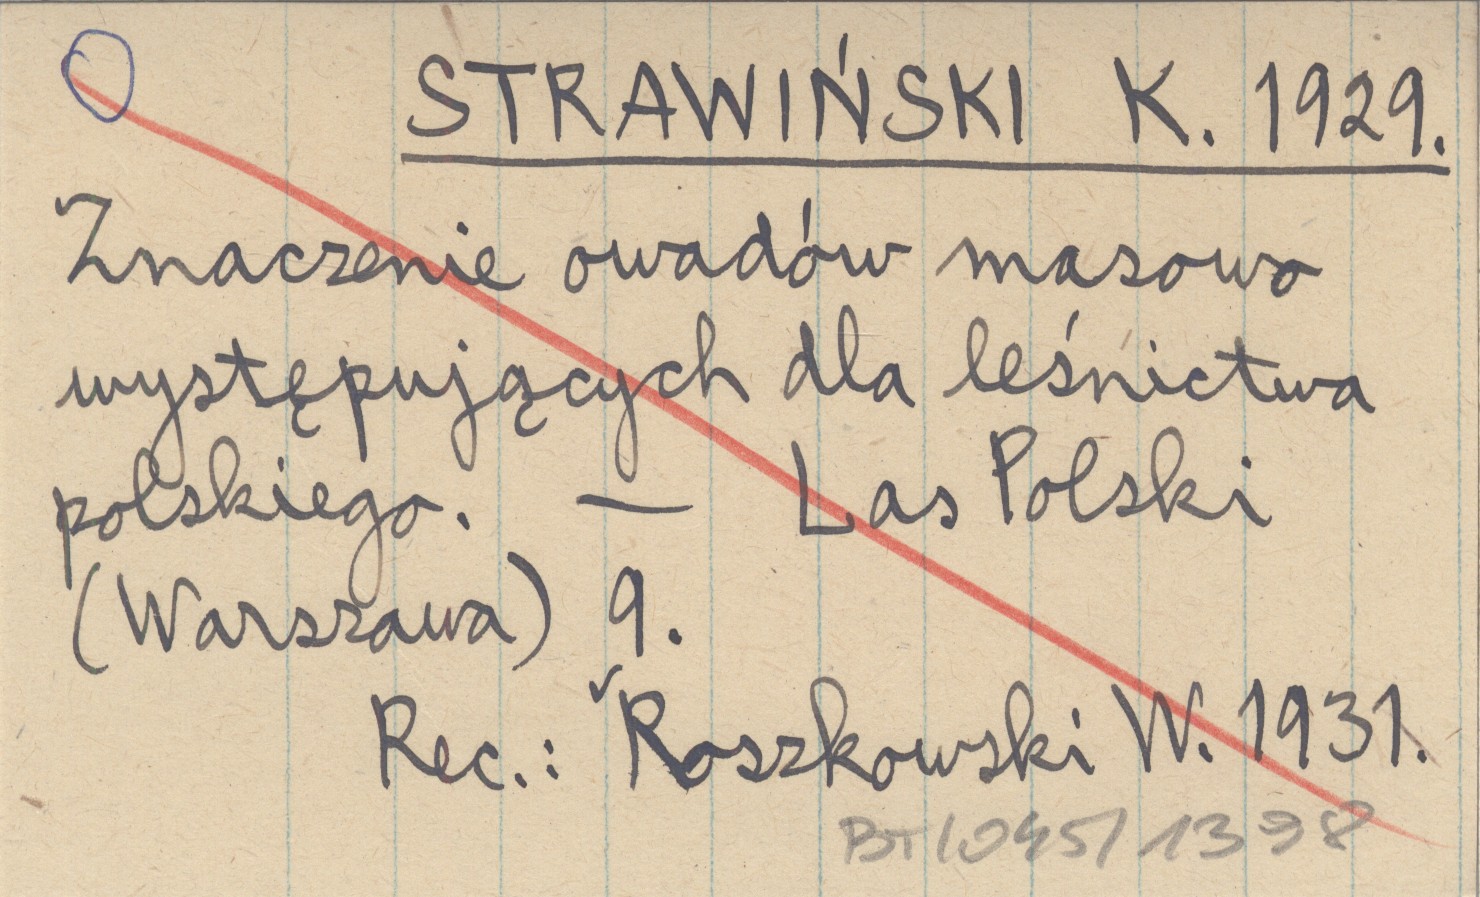 STRAWIŃSKI K. 1929.
Znaczenie owadów masowo
występujących dla leśnictwa
polskiego. — Las Polski
(Warszawa) 9.
Rec.: Roszkowski W. 1931.